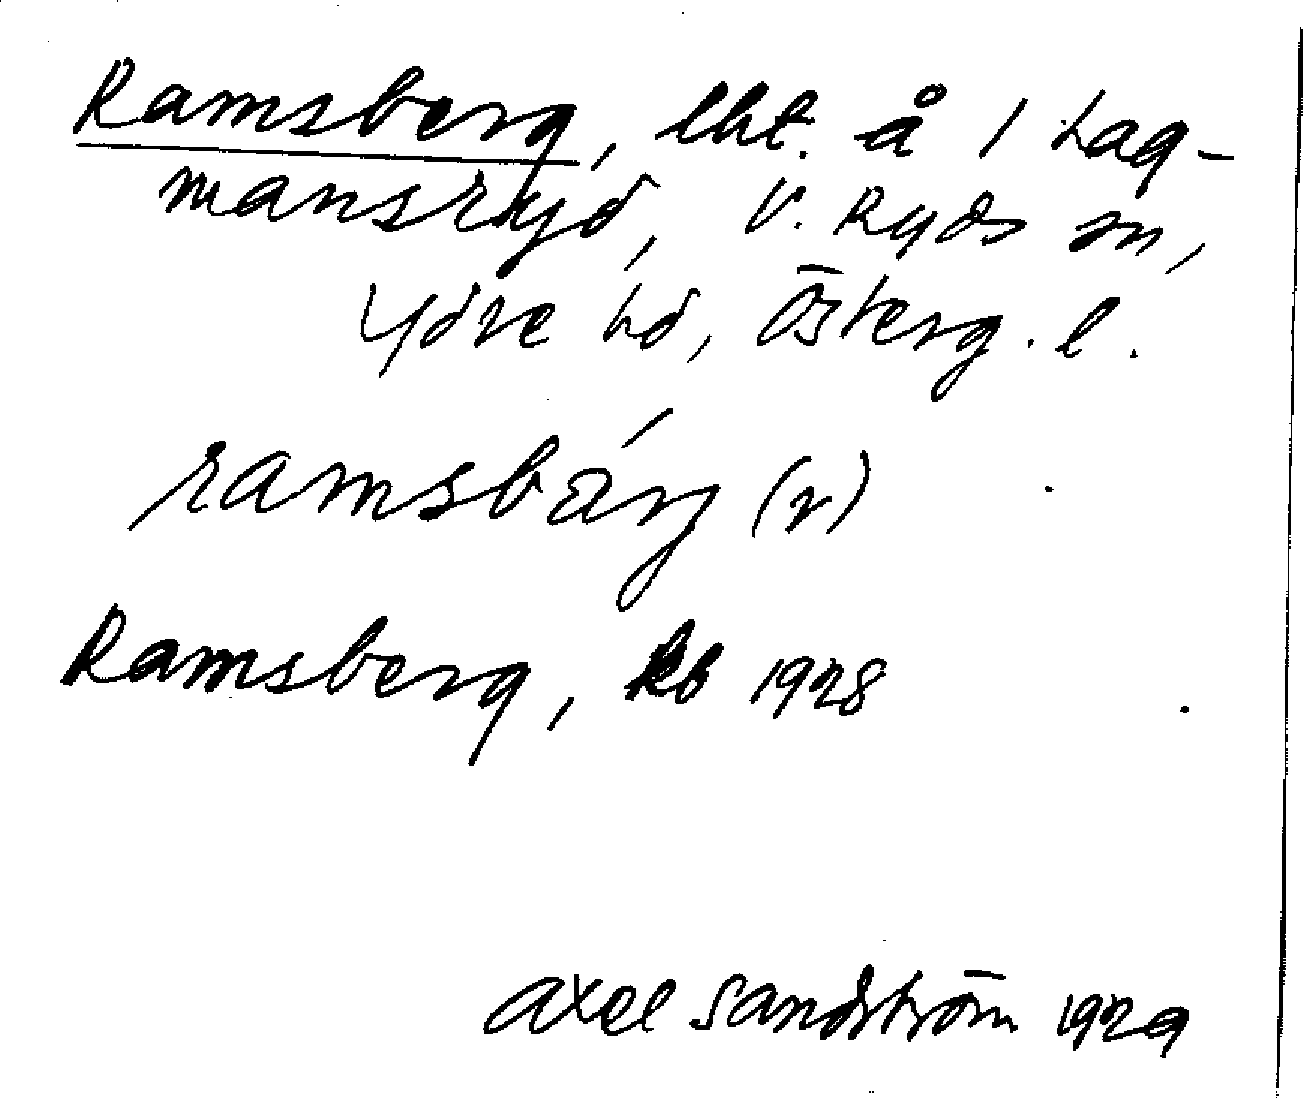 Ramsberg, lht. å 1 Lag-
mansryd, V. Ryds sn,
Ydre hd, Österg. l.
ramsbárj (r)
Ramsberg, kb 1928
Axel Sandström 1929